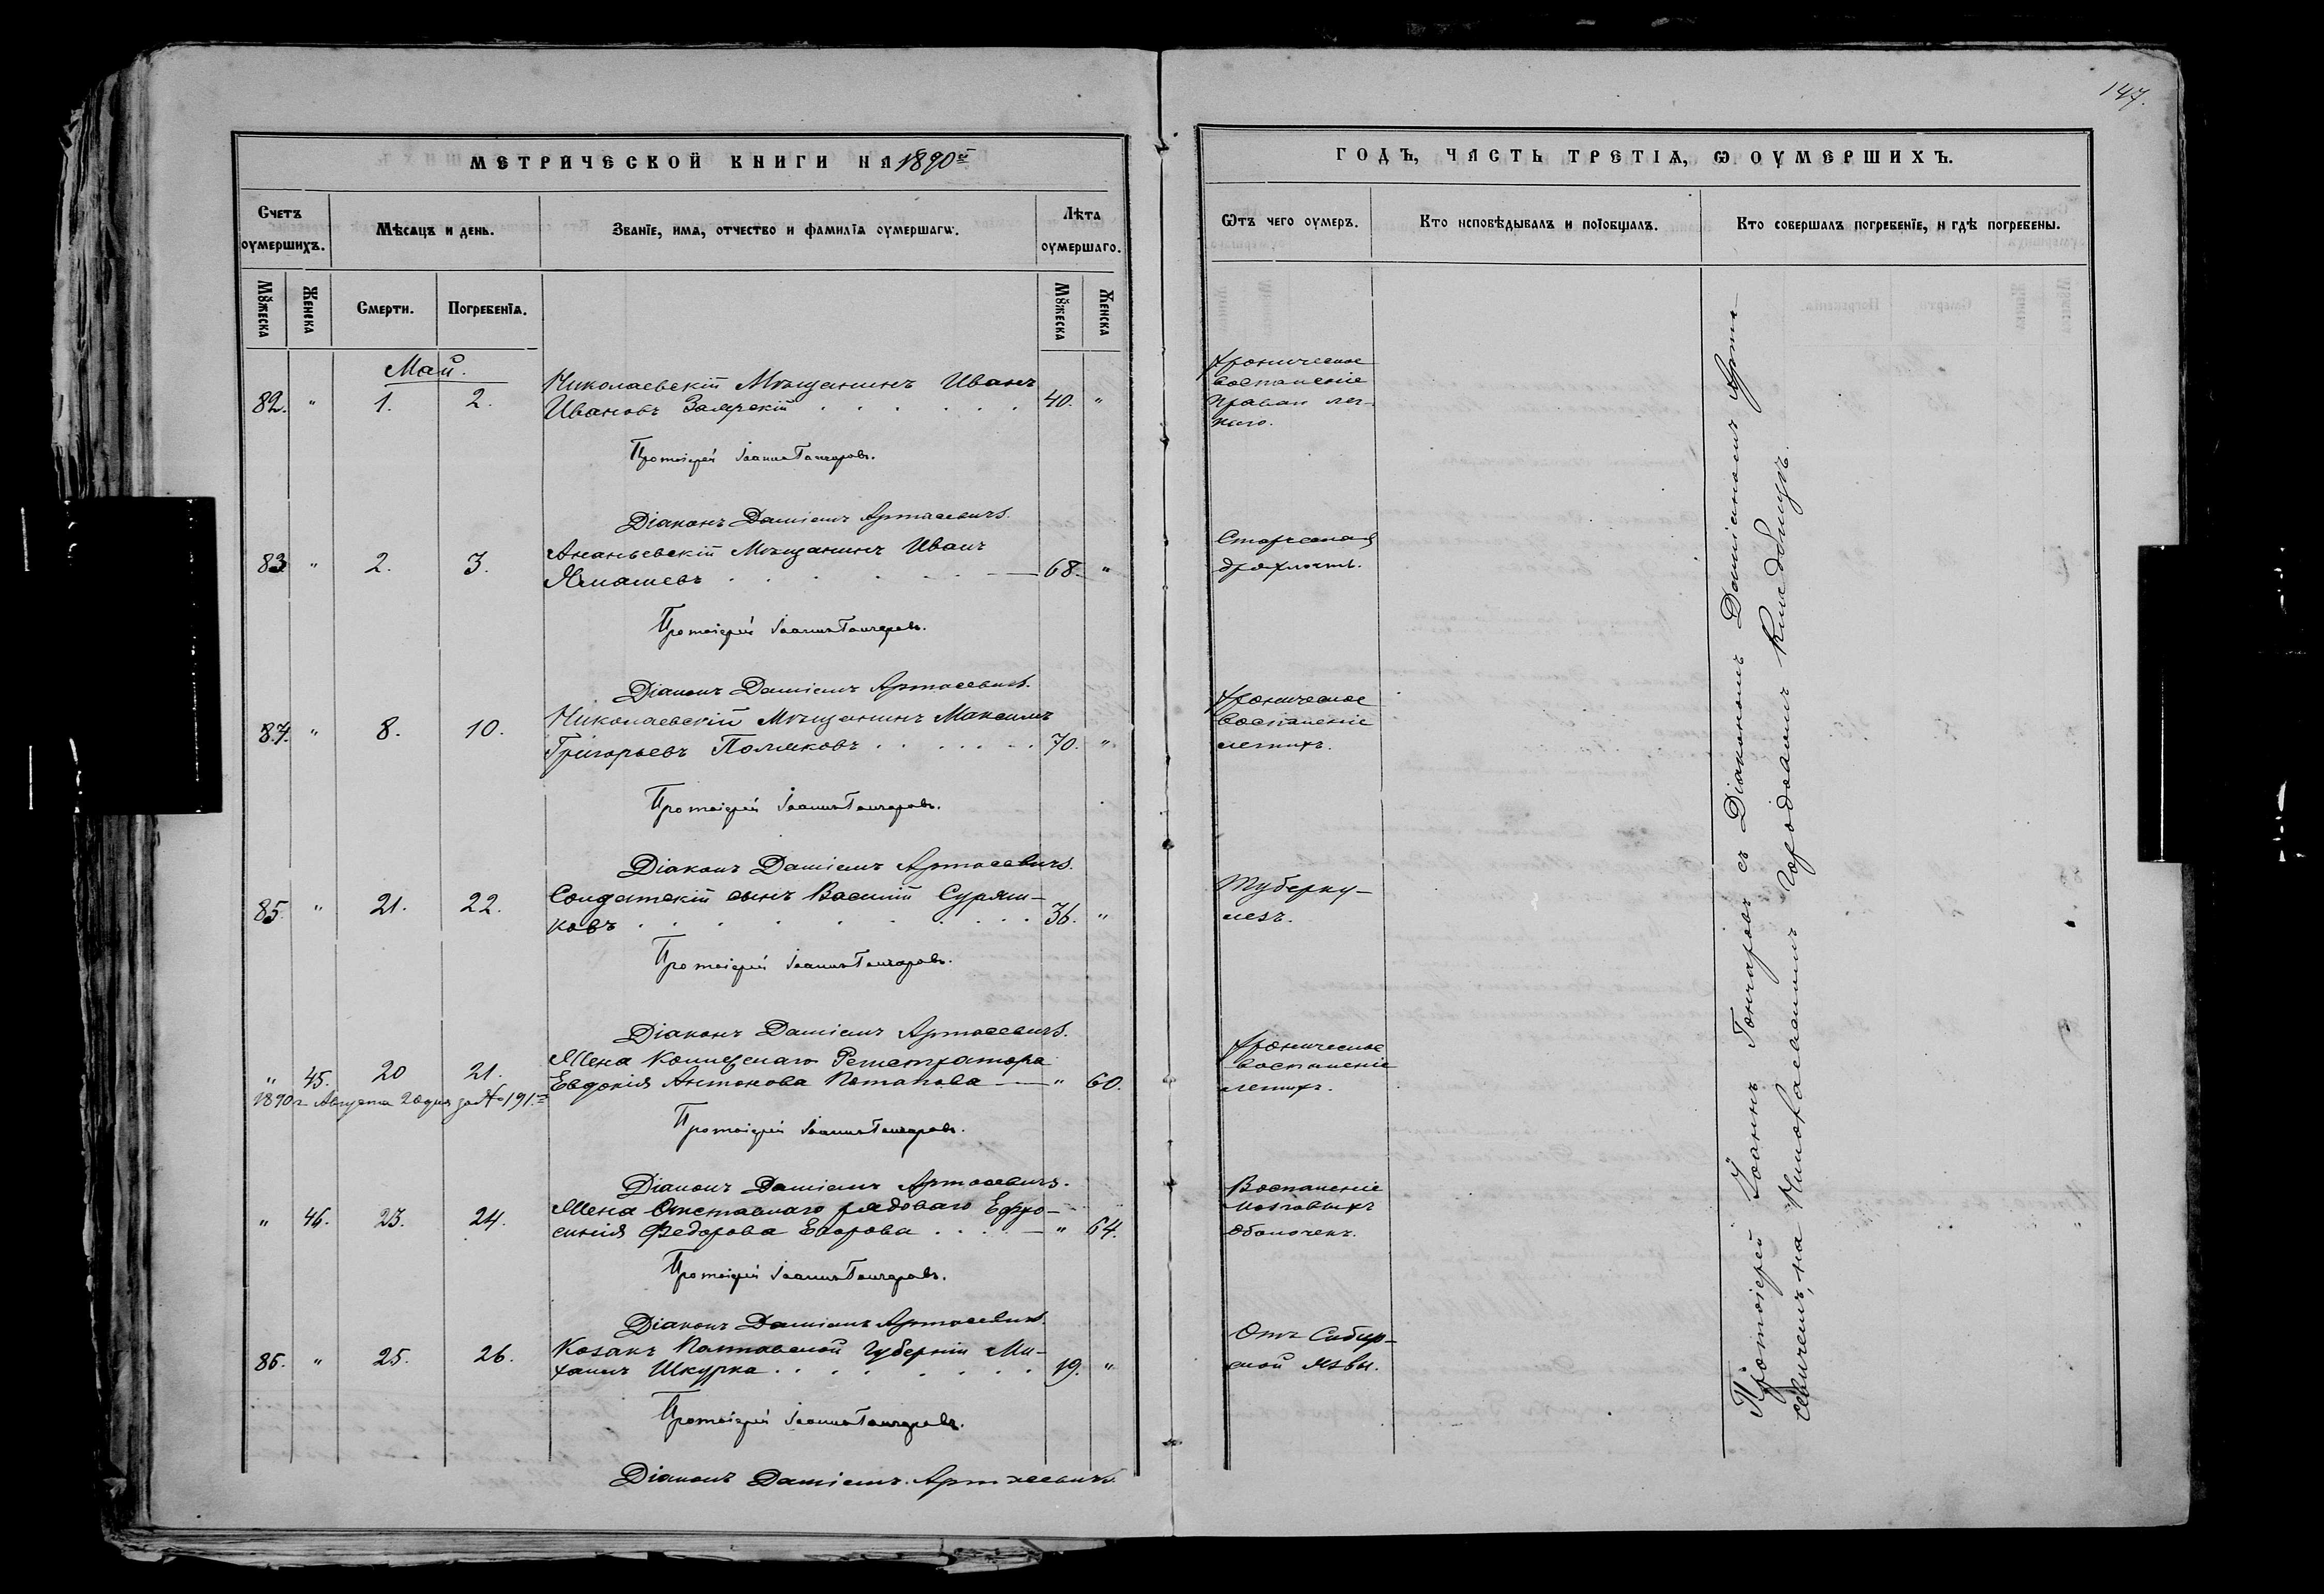 147.
МЕТРИЧЕСКОЙ КНИГИ НА 1890й
Счетъ оумершихъ.
Мѣсяцъ и день.
Званїе, имя, отчество и фамилїя оумершагѡ.
Лѣта оумершаго.
Мꙋжеска
Женска
Смерти.
Погребенїя.
Мꙋжеска
Женска
Май.
82. " 1. 2.
Николаевскій Мѣщанинъ Иванъ
Ивановъ 40. "
Протоіерей Іоаннъ Гончаровъ.
Діаконъ Даміанъ Артасевичъ.
83 " 2. 3.
Ананьевскій Мѣщанинъ Иванъ
68. "
Протоіерей Іоаннъ Гончаровъ.
Діаконъ Даміанъ Артасевичъ.
84. " 8. 10.
Николаевскій Мѣщанинъ Максимъ
Григорьевъ Поляковъ 70. "
Протоіерей Іоаннъ Гончаровъ.
Діаконъ Даміанъ Артасевичъ.
85. " 21. 22.
Солдатскій сынъ Василій
ковъ 36. "
Протоіерей Іоаннъ Гончаровъ.
Діаконъ Даміанъ Артасевичъ.
" 45. 20 21.
Жена Коллежскаго Регистратора
Евдокія Антонова Потапова — " 60.
1890 г. Августа 20 дня за № 191.
Протоіерей Іоаннъ Гончаровъ.
Діаконъ Даміанъ Артасевичъ.
" 46. 23. 24.
Жена Отставнаго рядоваго Ефро-
синія Федорова Егорова " 64.
Протоіерей Іоаннъ Гончаровъ.
Діаконъ Даміанъ Артасевичъ.
86. " 25. 26.
Козакъ Полтавской Губерніи Ми-
хаилъ Шкурка 19. "
Протоіерей Іоаннъ Гончаровъ.
Діаконъ Даміанъ Артасевичъ.
ГОДЪ, ЧАСТЬ ТРЕТІЯ, Ѡ ОУМЕРШИХЪ.
Ѿтъ чего оумеръ.
Кто исповѣдывалъ и прїобщалъ.
Кто совершалъ погребенїе, и гдѣ погребены.
Хроническое
воспаленіе
праваго лег-
каго.
Старческая
дряхлость.
Хроническое
воспаленіе
легкихъ.
Туберку-
лезъ.
Хроническое
воспаленіе
легкихъ.
Воспаленіе
мозговыхъ
оболочекъ.
Отъ Сибир-
ской язвы.
Протоіерей Іоаннъ Гончаровъ съ Діакономъ Даміаномъ Арта-
севичемъ, на Николаевскомъ городскомъ кладбищѣ.